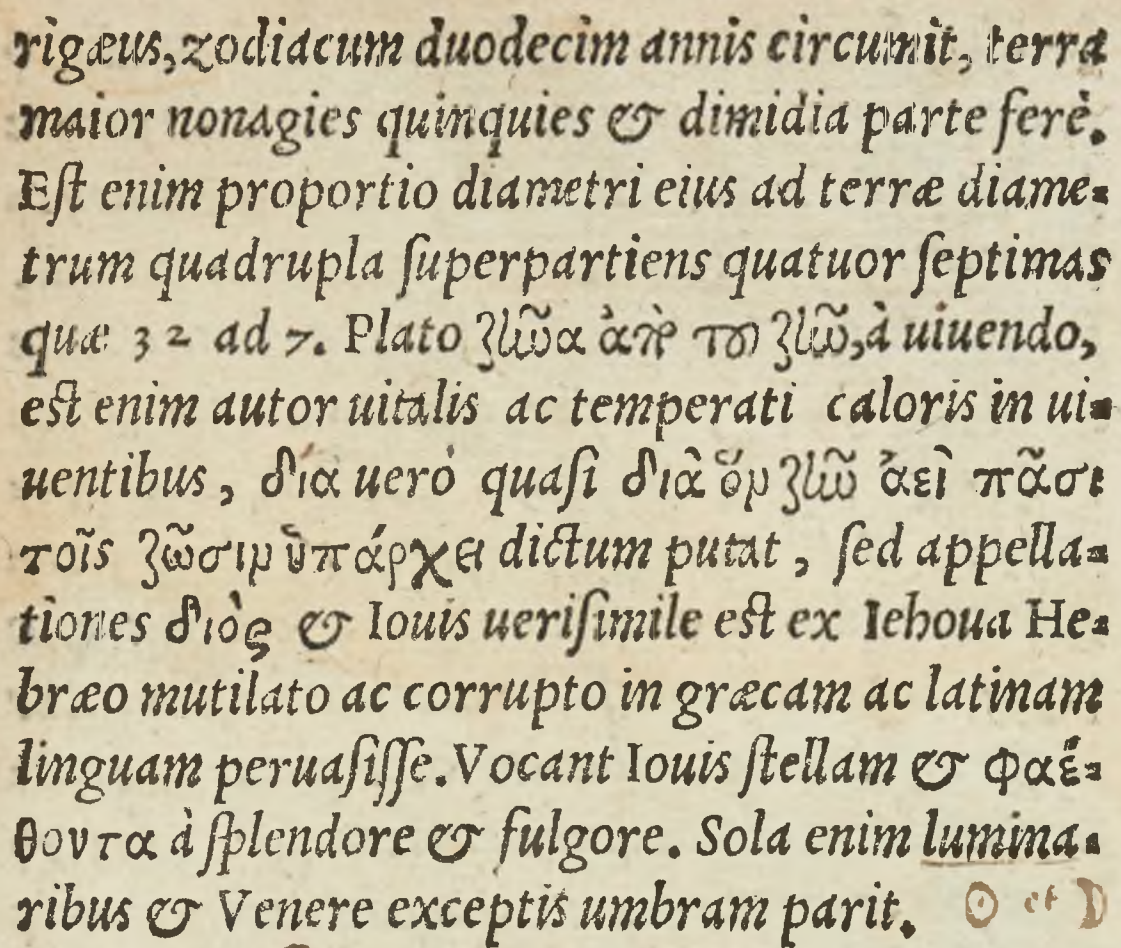 rigæus, zodiacum duodecim annis circumit, terra
maior nonagies quinquies & dimidia parte ferè.
Eſt enim proportio diametri eius ad terræ diame-
trum quadrupla ſuperpartiens quatuor ſeptimas
quæ 32 ad 7. Plato ζῆνα ἀπὸ τοῦ ζῆν, à uiuendo,
eſt enim autor uitalis ac temperati caloris in ui-
uentibus, δία uerò quaſi διὰ ὃν ζῆν ἀεὶ πᾶσι
τοῖς ζῶσιν ὑπάρχει dictum putat, ſed appella-
tiones διὸς & Iouis ueriſimile eſt ex Iehoua He-
bræo mutilato ac corrupto in græcam ac latinam
linguam peruaſiſſe. Vocant Iouis ſtellam & Φαέ-
θοντα à ſplendore & fulgore. Sola enim lumina-
ribus & Venere exceptis umbram parit. ☉ et ☽